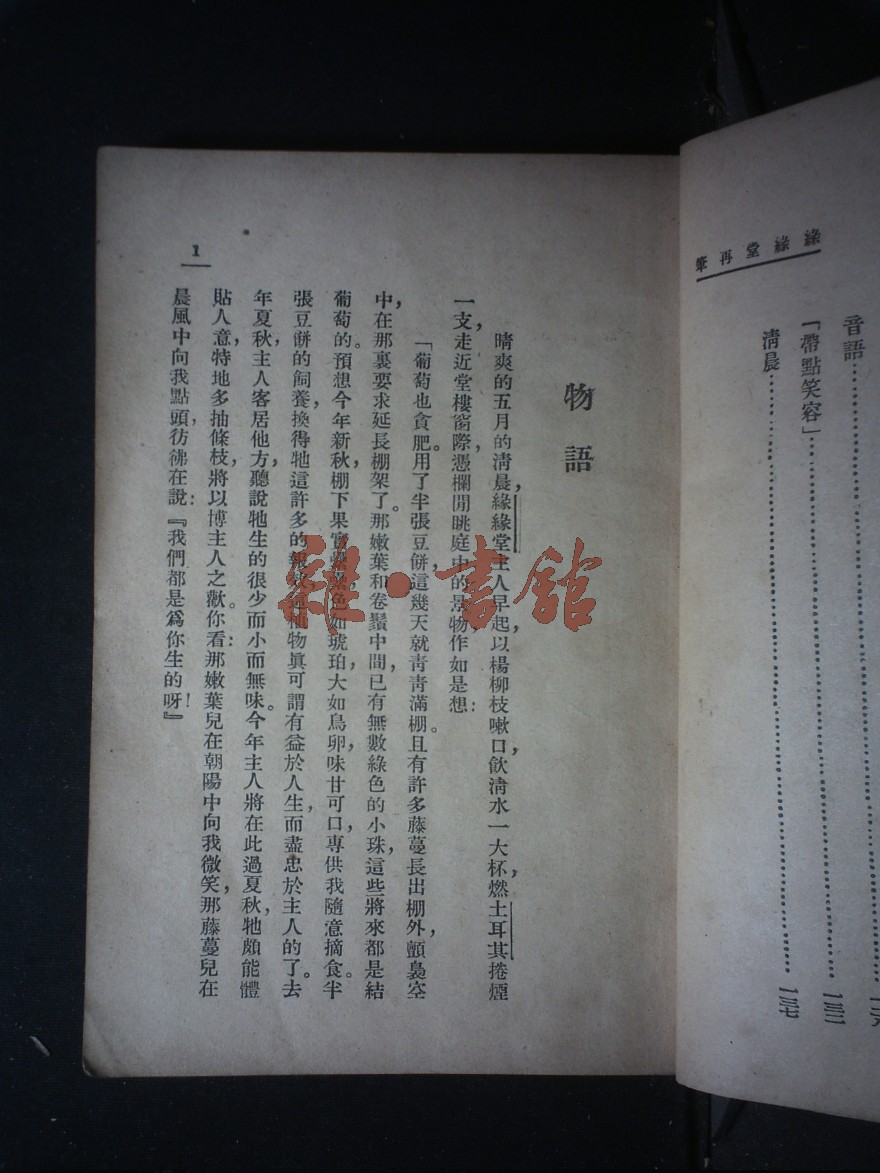 緣緣堂再筆
音語
「帶點笑容」 一三二
淸晨 一三七
物語
晴爽的五月的淸晨，緣緣堂主人早起，以楊柳枝嗽口，飮淸水一大杯，燃土耳其捲煙
一支，走近堂樓窗際，憑欄閒眺庭中的景物，作如是想：
「葡萄也貪肥。用了半張豆餅，這幾天就靑靑滿棚。且有許多藤蔓長出棚外，顫裊空
中，在那裏要求延長棚架了。那嫩葉和卷鬚中間，已有無數綠色的小珠，這些將來都是結
葡萄的。預想今年新秋，棚下果實纍纍，色如琥珀，大如鳥卵，味甘可口，專供我隨意摘食。半
張豆餅的飼養，換得牠這許多的報效，這植物眞可謂有益於人生，而盡忠於主人的了。去
年夏秋，主人客居他方，聽說牠生的很少而小而無味。今年主人將在此過夏秋，牠頗能體
貼人意，特地多抽條枝，將以博主人之歡。你看：那嫩葉兒在朝陽中向我微笑，那藤蔓兒在
晨風中向我點頭，彷彿在說：『我們都是爲你生的呀！』
1
雜·書館